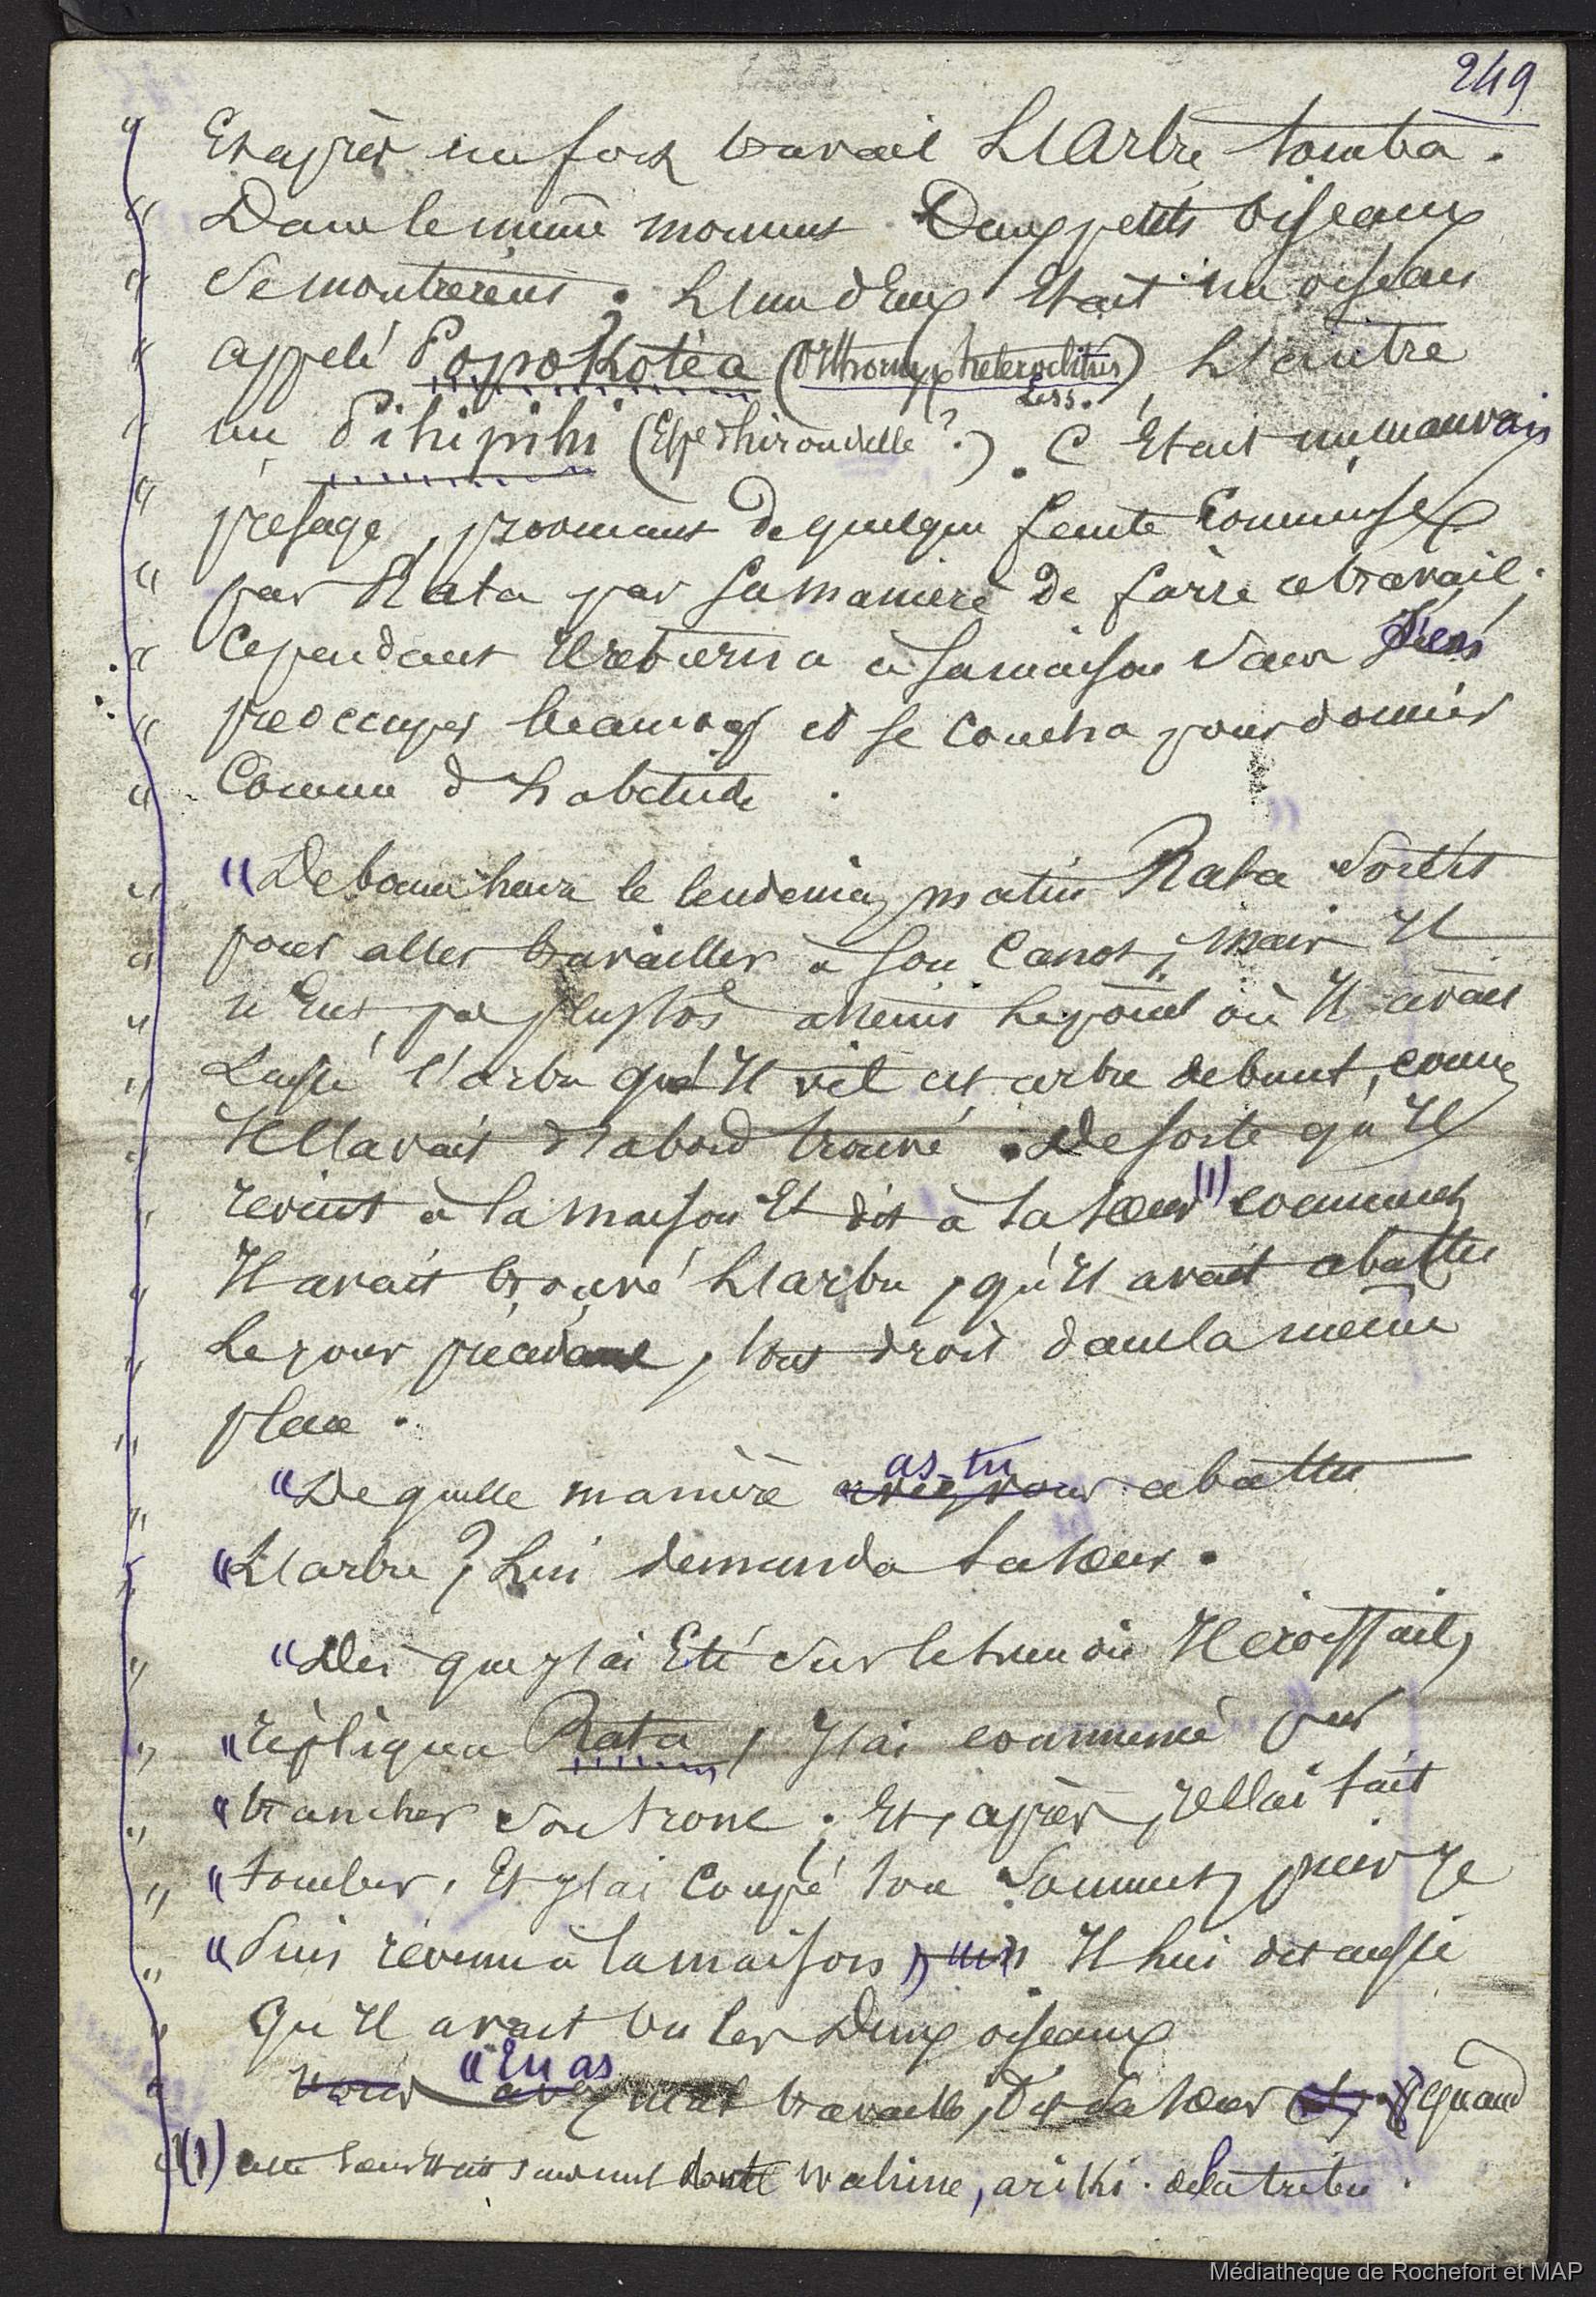 249
" Et après un fort travail L'Arbre tomba.
" Dans le même moment Deux petits oiseaux
" Se montrèrent. L'un d'Eux Etait un oiseau
" appelé Popokotéa (Orthonyx heteroclitus Less.), L'autre
" un Pihipihi (Esp d'hirondelle ?.). C'Etait un mauvais
" présage, provenant de quelque faute Commise
" par Rata par sa manière de faire ce travail;
" Cependant Il retourna à sa maison sans s'en
" preoccuper beaucoup et se coucha pour dormir
" Comme d'habitude.
" "De bonne heure le lendemain matin Rata sortit
" pour aller travailler à son Canot; mais Il
" n'Eut pas plustôt atteint le point où Il avait
" Laissé l'arbre qu'Il vit cet arbre debout, comme
" Il l'avait d'abord trouvé. De sorte qu'Il
" revint à la maison Et dit à sa sœur (1) comment
" Il avait trouvé L'arbre, qu'Il avait abattu
" Le jour précédent, tout droit dans la même
" place.
" "De quelle manière avez vous as-tu abattu
" "L'arbre ? Lui demanda sa sœur.
" "Dès que j'ai Eté sur le lieu où Il croissait,
" "répliqua Rata, J'ai commencé par
" "trancher son tronc; Et, après, je l'ai fait
" "tomber, Et j'ai coupé son sommet, puis Je
" "Suis revenu à la maison," Il lui dit aussi
" qu'Il avait vu les Deux oiseaux
" vous avez "Tu as mal travaillé, Dit sa sœur "quand
(1) cette sœur Etait sans nul doute wahine, ariki de la tribu.
Médiathèque de Rochefort et MAP